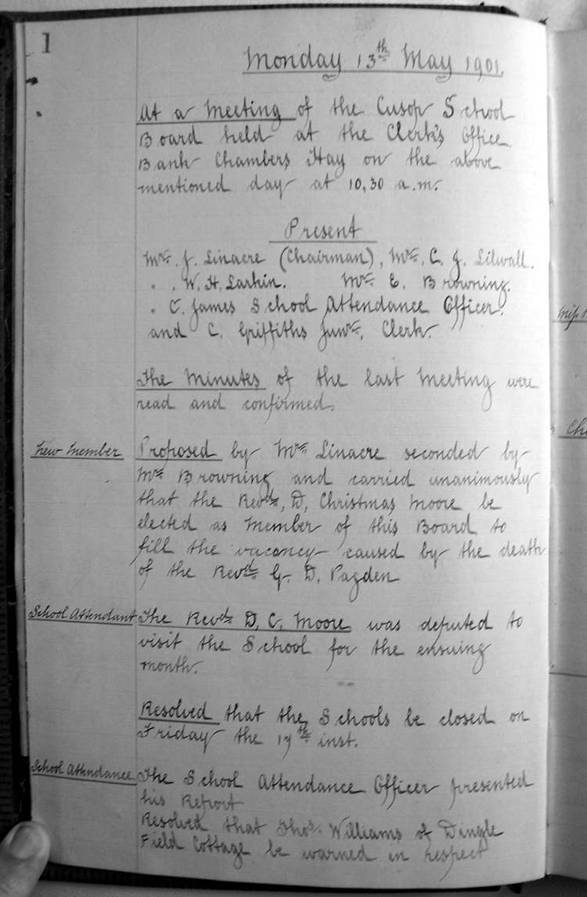 1
Monday 13th May 1901.
At a Meeting of the Cusop School
Board held at the Clerk's Office
Bank Chambers Hay on the above
mentioned day at 10,30 a.m.
Present
Mr. J. Linacre (Chairman), Mr. C. J. Lilwall.
" . W. H. Larkin. Mr E. Browning.
" C. James School Attendance Officer.
and C. Griffiths Junr., Clerk.
The Minutes of the last Meeting were
read and confirmed.
New Member
Proposed by Mr Linacre seconded by
Mr Browning and carried unanimously
that the Revd, D, Christmas Moore be
elected as Member of this Board to
fill the vacancy caused by the death
of the Revd G. D. Pagden
School Attendant
The Revd D. C. Moore was deputed to
visit the School for the ensuing
month.
Resolved that the Schools be closed on
Friday the 17th inst.
School Attendance
The School Attendance Officer presented
his Report
Resolved that Thos. Williams of Dingle
Field Cottage be warned in respect